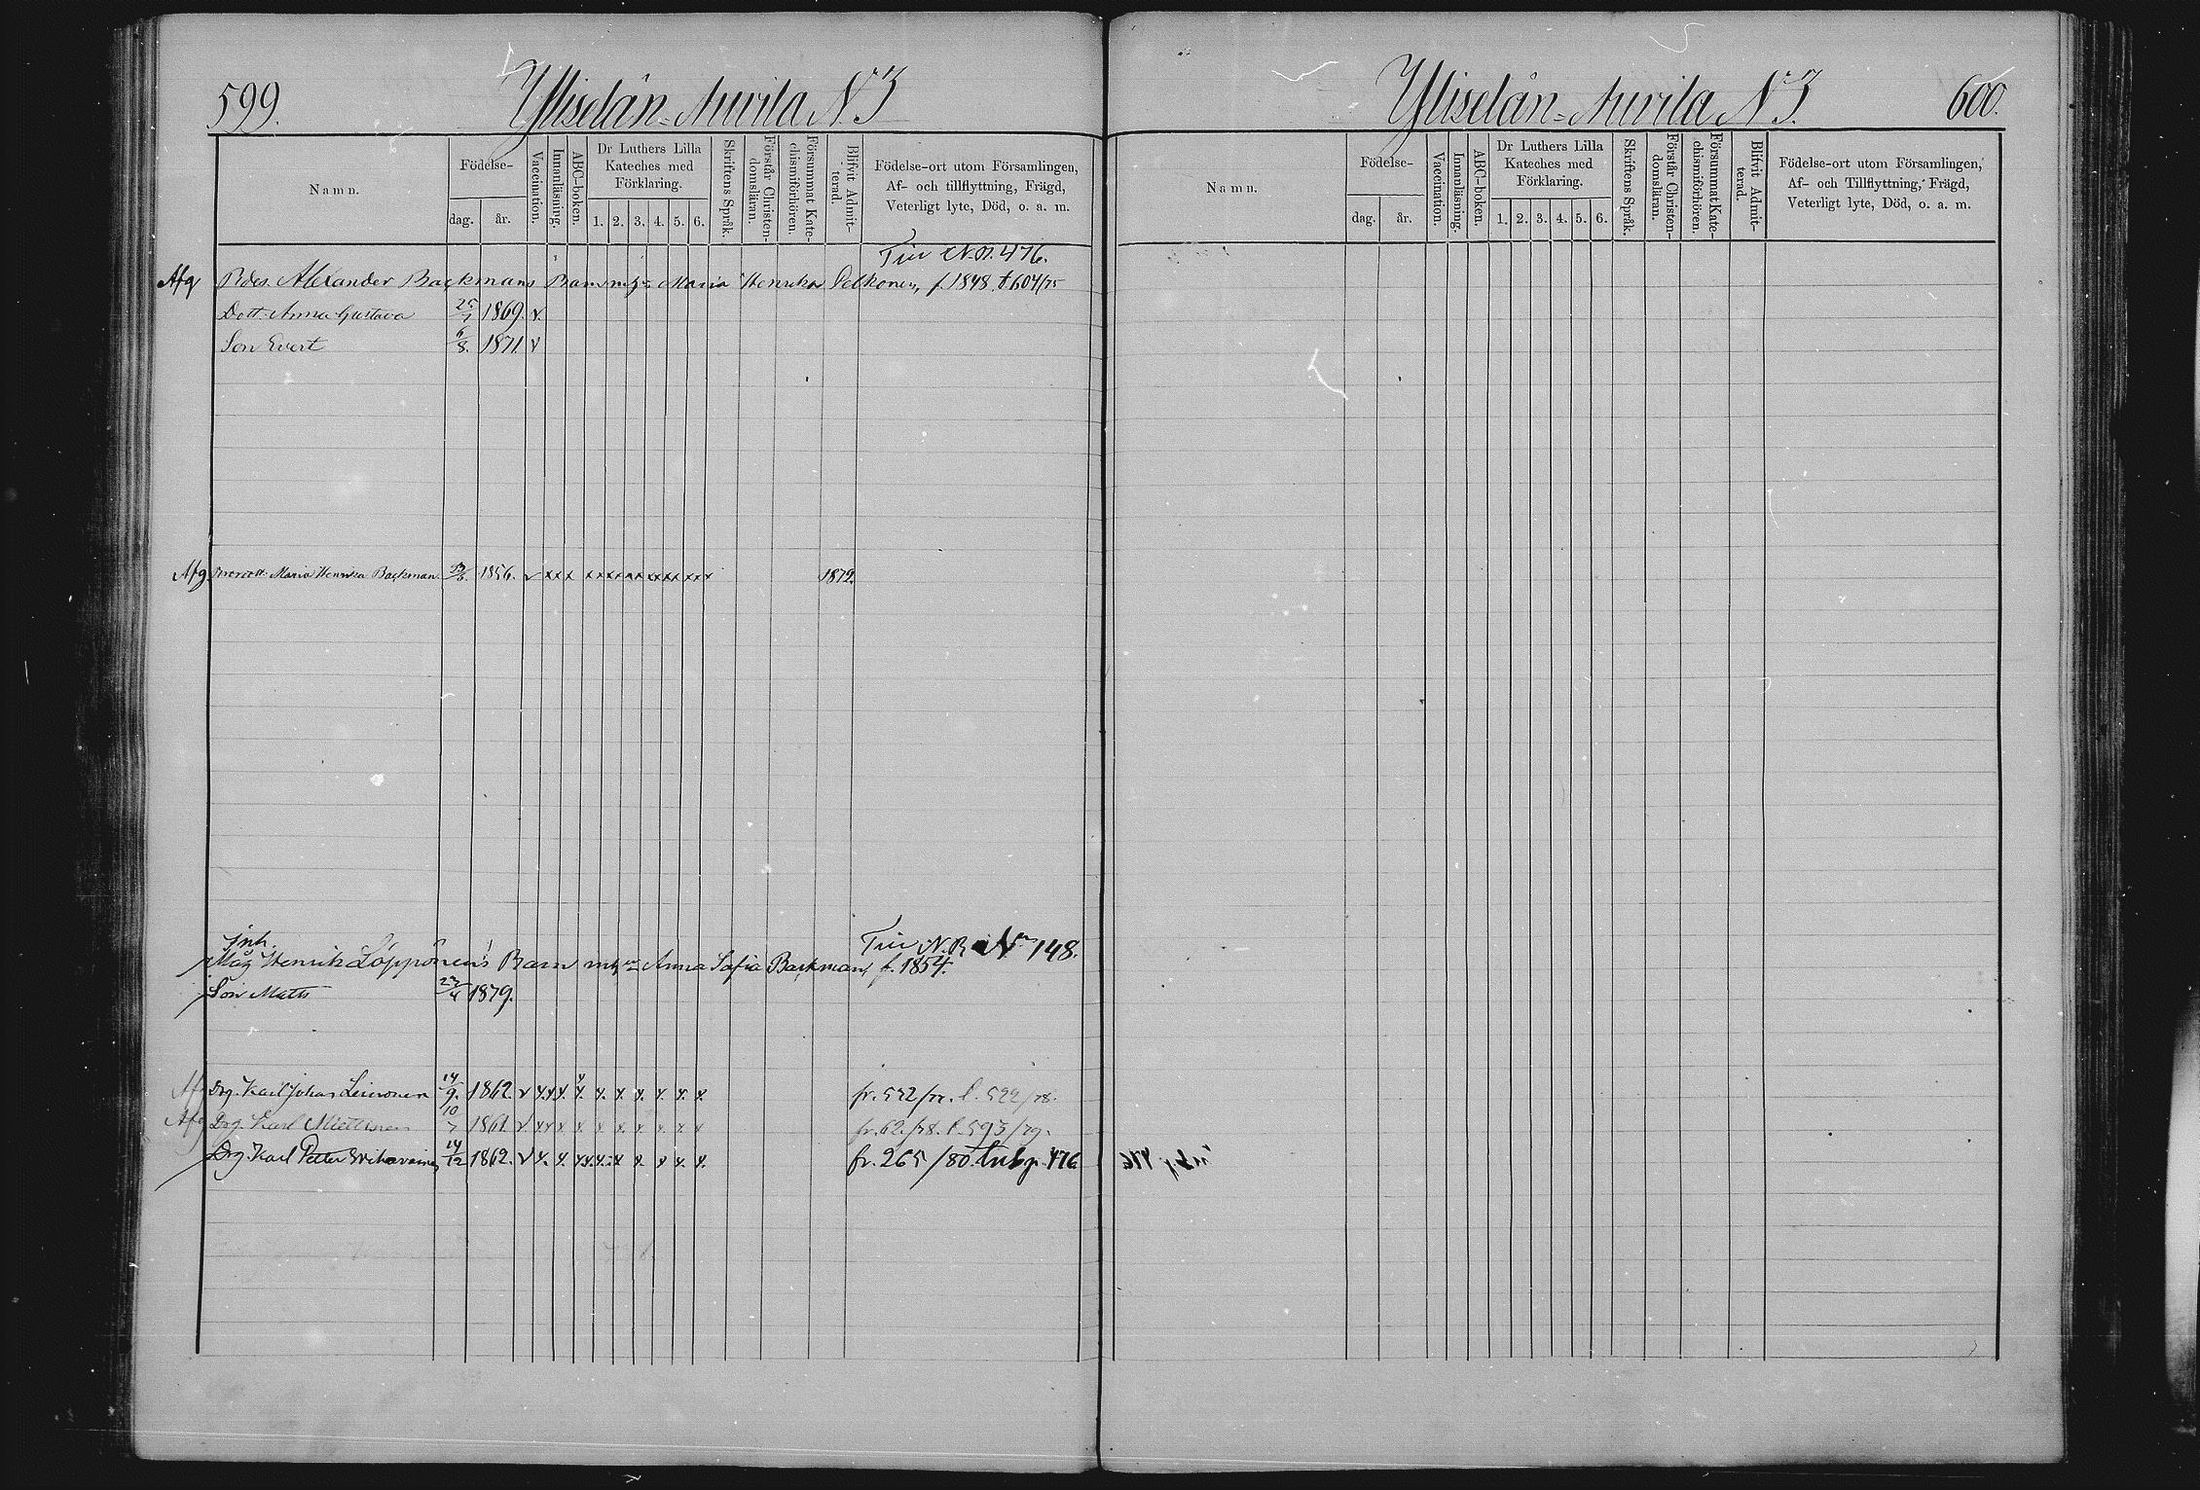 599. Yliselän-Auvila N:o 3
Namn. Födelse- dag. år. Vaccination. Innanläsning. ABC-boken. Dr Luthers Lilla Kateches med Förklaring. 1. 2. 3. 4. 5. 6. Skriftens Språk. Förstår Christendomsläran. Försummat Katechismiförhören. Blifvit Admitterad. Födelse-ort utom Församlingen, Af- och tillflyttning, Frägd, Veterligt lyte, Död, o. a. m.
476.
Afg Alexander Backmans Barn Maria Henrika Pelkonen, f. 1848 604/75
Dott. Anna Gustava 25/7 1869. v.
Son Evert 6/8. 1871 v
Afg Maria Henrika Backman 1856. v xxx xxxx xx xxxx xxx 1872.
N:o 148.
Inh.
Måg Henrik Löppönen's Barn Anna Sofia Backman, f. 1854.
Son Matts 27/4 1879.
Af Drg. Karl Johan Leinonen 14/9. 1862. v fr. 522/78.
Afg Drg. Karl Miettinen 10/7 1861 v fr. 62./78. l. 593/79.
Drg Karl Petter 14/12 1862. v fr. 265/80 476
Yliselän-Auvila N:o 3. 600.
Namn. Födelse- dag. år. Vaccination. Innanläsning. ABC-boken. Dr Luthers Lilla Kateches med Förklaring. 1. 2. 3. 4. 5. 6. Skriftens Språk. Förstår Christendomsläran. Försummat Katechismiförhören. Blifvit Admitterad. Födelse-ort utom Församlingen, Af- och Tillflyttning, Frägd, Veterligt lyte, Död, o. a. m.